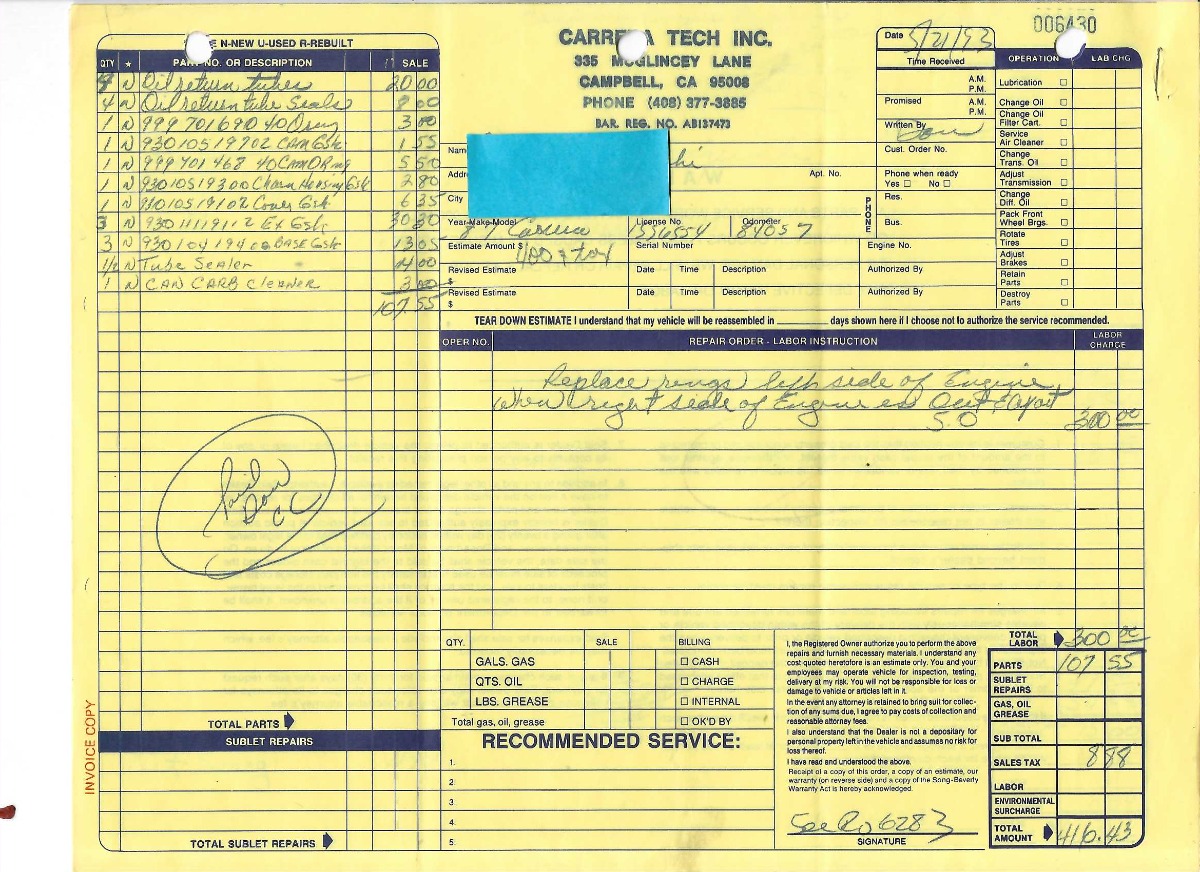 006430
N-NEW U-USED R-REBUILT
QTY * PART NO. OR DESCRIPTION SALE
4 N Oil return tubes 20 00
4 N Oil return tube Seals 8 00
1 N 999 701 690 40 Oring 3 00
1 N 930 105 197 02 CAM Gsk 1 55
1 N 999 701 468 40 CAM O Ring 5 50
1 N 930 105 193 00 Chain Housing Gsk 2 80
1 N 930 105 191 02 Cover Gsk 6 35
3 N 930 111 191 12 Ex Gsk 30 30
3 N 930 104 194 BASE Gsk 13 05
1/2 N Tube Sealer 14 00
1 N CAN CARB CLEANER 3 00
107.55
Paid
CC
TOTAL PARTS
SUBLET REPAIRS
TOTAL SUBLET REPAIRS
INVOICE COPY
CARRERA TECH INC.
335 McGLINCEY LANE
CAMPBELL, CA 95008
PHONE (408) 377-3885
BAR. REG. NO. AB137473
Date 5/21/93
Time Received
A.M.
P.M.
Promised A.M.
P.M.
Written By
Cust. Order No.
Name
Addr Apt. No.
City
Phone when ready
Yes No
PHONE
Res.
Bus.
Year-Make-Model 87 Carrera
License No. 1S56554
Odometer 84057
Estimate Amount $ 400 + tax
Serial Number
Engine No.
Revised Estimate $ Date Time Description Authorized By
Revised Estimate $ Date Time Description Authorized By
OPERATION LAB CHG
Lubrication
Change Oil
Change Oil Filter Cart.
Service Air Cleaner
Change Trans. Oil
Adjust Transmission
Change Diff. Oil
Pack Front Wheel Brgs.
Rotate Tires
Adjust Brakes
Retain Parts
Destroy Parts
TEAR DOWN ESTIMATE I understand that my vehicle will be reassembled in ________ days shown here if I choose not to authorize the service recommended.
OPER NO. REPAIR ORDER - LABOR INSTRUCTION LABOR CHARGE
Replace rings left side of Engine
when right side of Engine is Out & Apart
5.0 300 00
QTY. SALE BILLING
GALS. GAS CASH
QTS. OIL CHARGE
LBS. GREASE INTERNAL
Total gas, oil, grease OK'D BY
RECOMMENDED SERVICE:
1.
2.
3.
4.
5.
I, the Registered Owner authorize you to perform the above
repairs and furnish necessary materials. I understand any
cost quoted heretofore is an estimate only. You and your
employees may operate vehicle for inspection, testing,
delivery at my risk. You will not be responsible for loss or
damage to vehicle or articles left in it.
In the event any attorney is retained to bring suit for collec-
tion of any sums due, I agree to pay costs of collection and
reasonable attorney fees.
I also understand that the Dealer is not a depositary for
personal property left in the vehicle and assumes no risk for
loss thereof.
I have read and understood the above.
Receipt of a copy of this order, a copy of an estimate, our
warranty (on reverse side) and a copy of the Song-Beverly
Warranty Act is hereby acknowledged.
See Ro 6283
SIGNATURE
TOTAL LABOR 300 00
PARTS 107 55
SUBLET REPAIRS
GAS, OIL GREASE
SUB TOTAL
SALES TAX 8 88
LABOR
ENVIRONMENTAL SURCHARGE
TOTAL AMOUNT 416.43